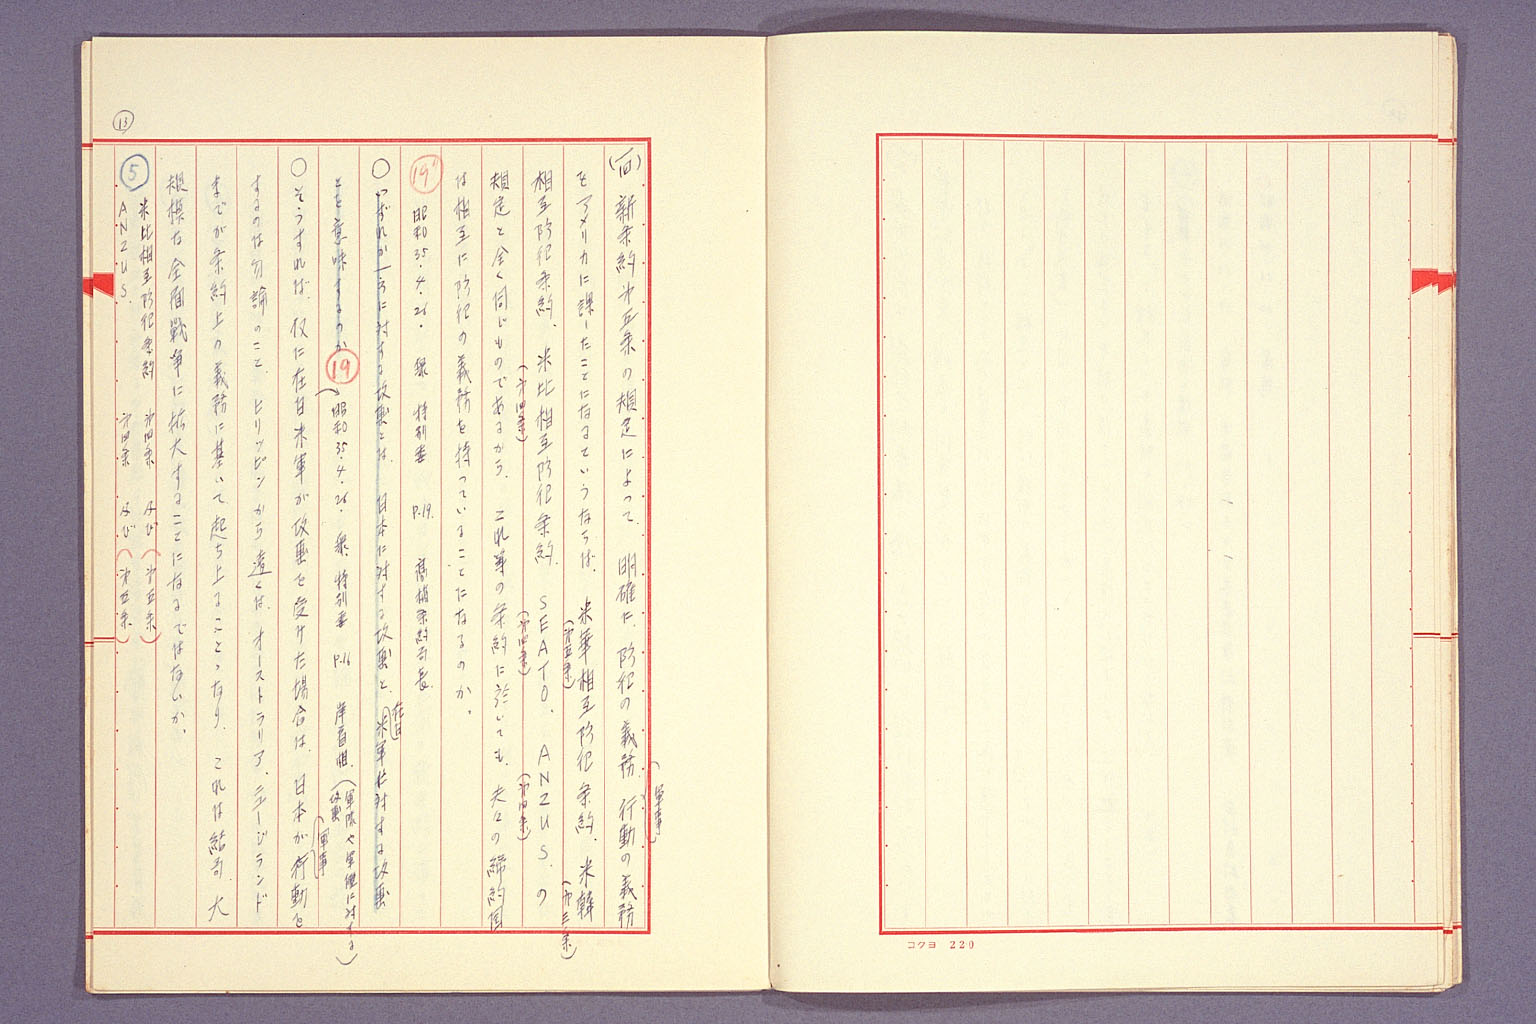 (四) 新条約第五条の規定によって、明確に、防犯の義務、行動の義務
(軍事)
をアメリカに課したことになるというならば、米華相互防犯条約、米韓
(第五条)
(第三条)
相互防犯条約、米比相互防犯条約、SEATO、ANZUS、の
(第四条)
(第四条)
(第四条)
規定と全く同じものであるから、これ等の条約に於いても、夫々の締約国
は相互に防犯の義務を持っていることになるのか。
19' 昭和35.4.26. 衆 特別委 P.19. 高橋条約局長
○いずれか一方に対する攻撃とは、日本に対する攻撃と、米軍に対する攻撃
在日
とを意味するのか
19 昭和35.4.26. 衆 特別委 P.16 岸首相
(軍隊や軍艦に対する
攻撃)
○そうすれば、仮に在日米軍が攻撃を受けた場合は、日本が行動を
(軍事)
するのは勿論のこと、ヒリッピンから遠くは、オーストラリア、ニュージランド
までが条約上の義務に基いて起ち上ることゝなり、これは結局、大
規模な全面戦争に拡大することになるではないか。
5 米比相互防犯条約 第四条 及び (第五条)
ANZUS. 第四条 及び (第五条)
13
コクヨ 220